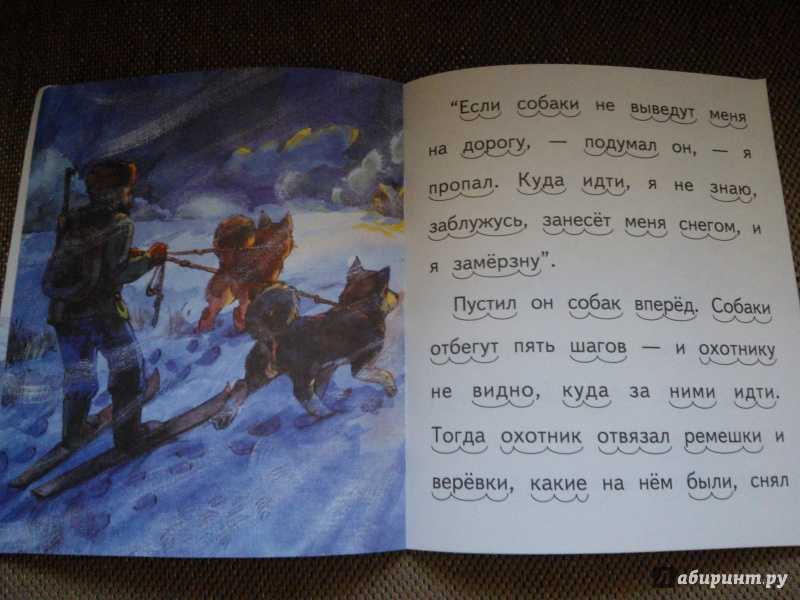 “Если собаки не выведут меня
на дорогу, — подумал он, — я
пропал. Куда идти, я не знаю,
заблужусь, занесёт меня снегом, и
я замёрзну”.
Пустил он собак вперёд. Собаки
отбегут пять шагов — и охотнику
не видно, куда за ними идти.
Тогда охотник отвязал ремешки и
верёвки, какие на нём были, снял
Лабиринт.ру